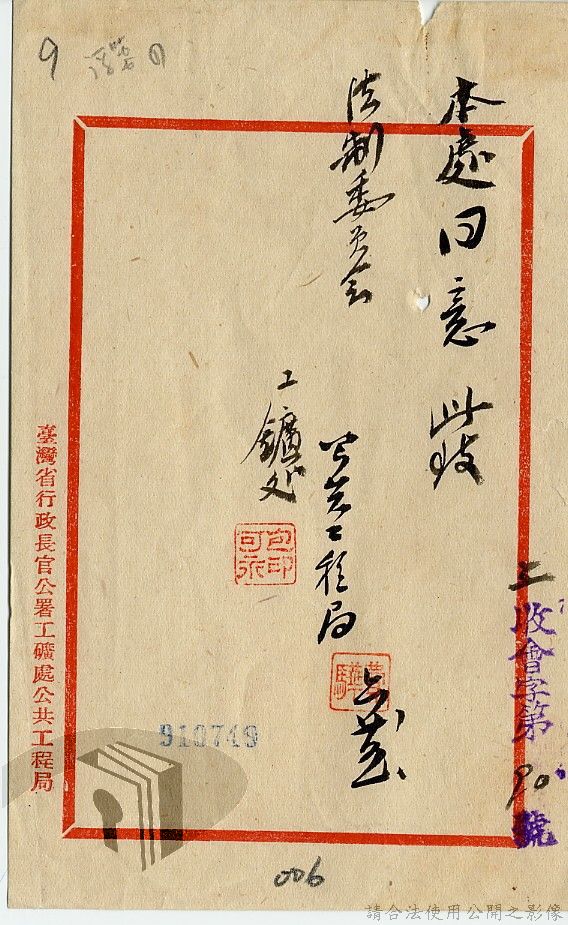 9
本處同意 此致
法制委員会
公共工程局
工鑛处
包可永印
收會字第90號
臺灣省行政長官公署工礦處公共工程局
910749
006
請合法使用公開之影像